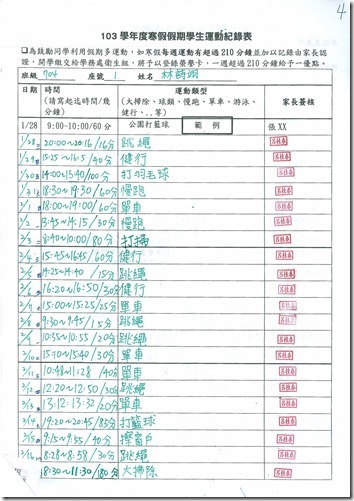 4
103 學年度寒假假期學生運動紀錄表
□為鼓勵同學利用假期多運動,如寒假每週運動有超過210分鐘並加以記錄由家長認
證,開學繳交給學務處衛生組,將予以登錄榮譽卡,一週超過210分鐘給予一優點。
班級 704 座號 1 姓名
日期 時間(請寫起迄時間/幾分鐘) 運動類型(大掃除、球類、慢跑、單車、游泳、健行、..等) 家長簽核
1/28 9:00-10:00/60分 公園打籃球 範例 張XX
1/28 20:00~20:16/16分 跳繩
1/29 15:25~16:5/40分 健行
1/30 14:00~13:40/100分 打羽毛球
1/31 18:30~19:30/60分 慢跑
2/1 18:00~19:00/60分 單車
2/2 13:45~14:15/30分 慢跑
2/3 8:40~10:00/80分 打掃
2/4 15:45~16:45/60分 健行
2/5 14:25~14:40/15分 跳繩
2/6 16:20~16:50/30分 健行
2/7 15:00~15:25/25分 單車
2/8 9:30~9:45/15分 跳繩
10:35~10:55/20分 跳繩
2/10 15:10~15:40/30分 單車
2/11 10:48~11:28/40分 單車
2/12 12:20~12:50/30分 跳繩
2/13 13:12~13:32/20分 單車
2/14 19:20~20:45/85分 打籃球
2/15 9:15~9:55/40分 擦窗戶
2/16 8:28~8:58/30分 跳繩
8:30~11:30/180分 大掃除